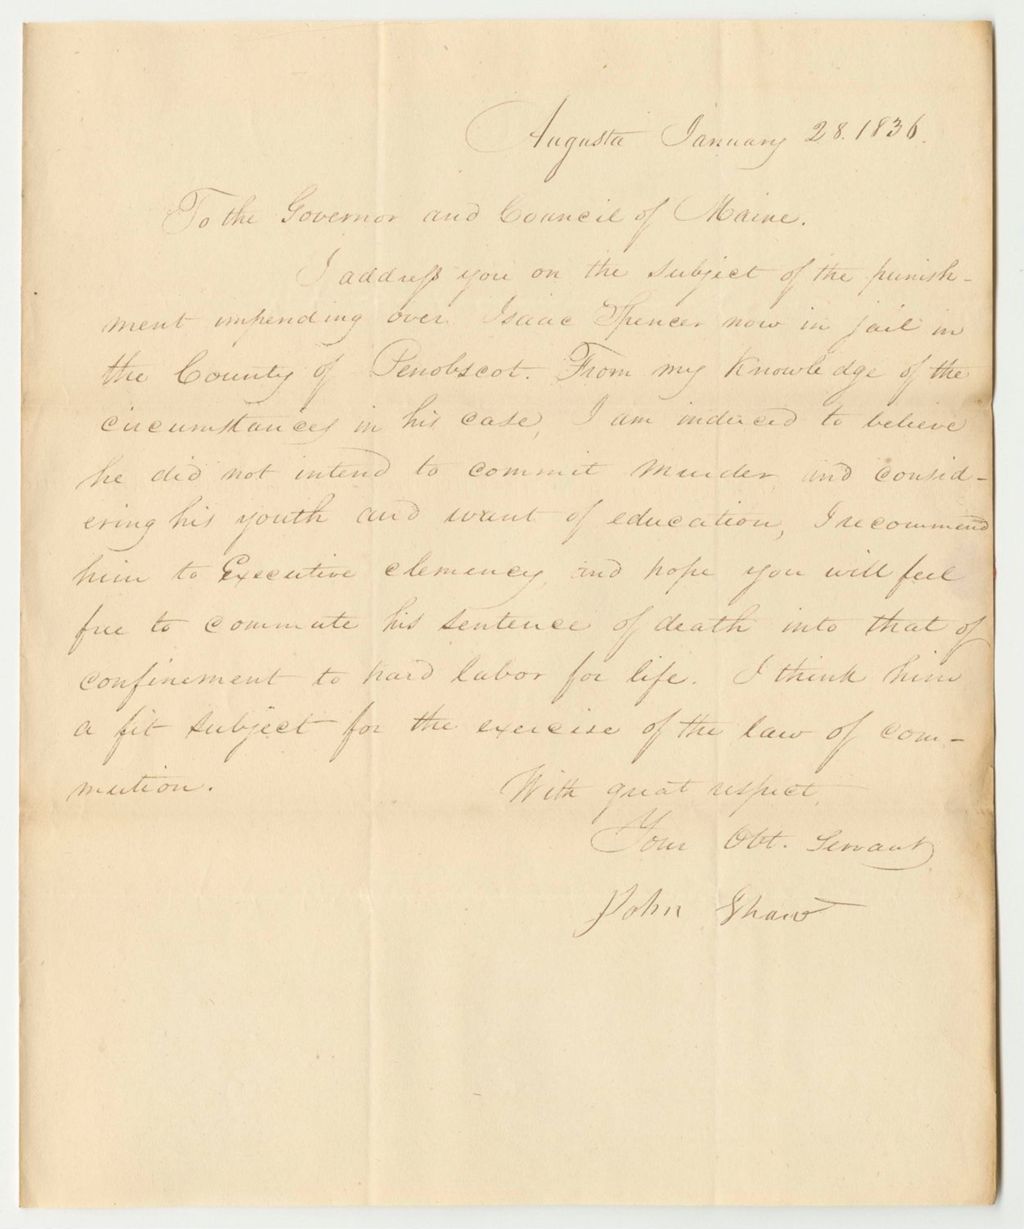 Augusta January 28. 1836.
To the Governor and Council of Maine.
I address you on the subject of the punish-
ment impending over Isaac Spencer now in jail in
the County of Penobscot. From my Knowledge of the
circumstances in his case, I am induced to believe
he did not intend to commit murder, and consid-
ering his youth and want of education, I recommend
him to Executive clemency, and hope you will feel
free to commute his sentence of death into that of
confinement to hard labor for life. I think him
a fit subject for the exercise of the law of com-
mution.
With great respect,
Your Obt. Servant
John Shaw